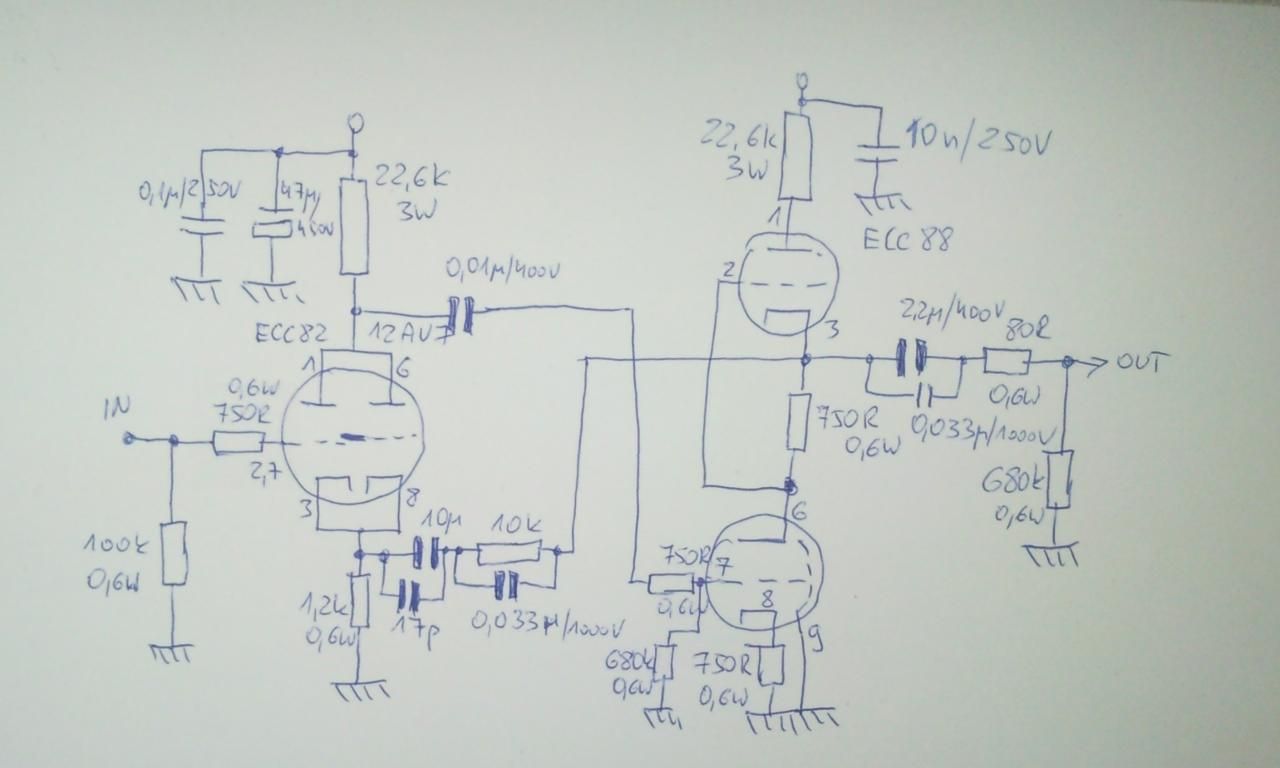 0,1µ/250V
47µ/
450V
22,6k
3W
0,01µ/400V
ECC82
12AU7
1
6
IN
0,6W
750R
2,7
3
8
100k
0,6W
10µ
10k
1,2k
0,6W
17p
0,033µ/1000V
22,6k
3W
10n/250V
1
ECC 88
2
3
2,2µ/400V
80R
OUT
0,6W
750R
0,6W
0,033µ/1000V
680k
0,6W
6
750R
7
0,6W
8
9
680k
0,6W
750R
0,6W